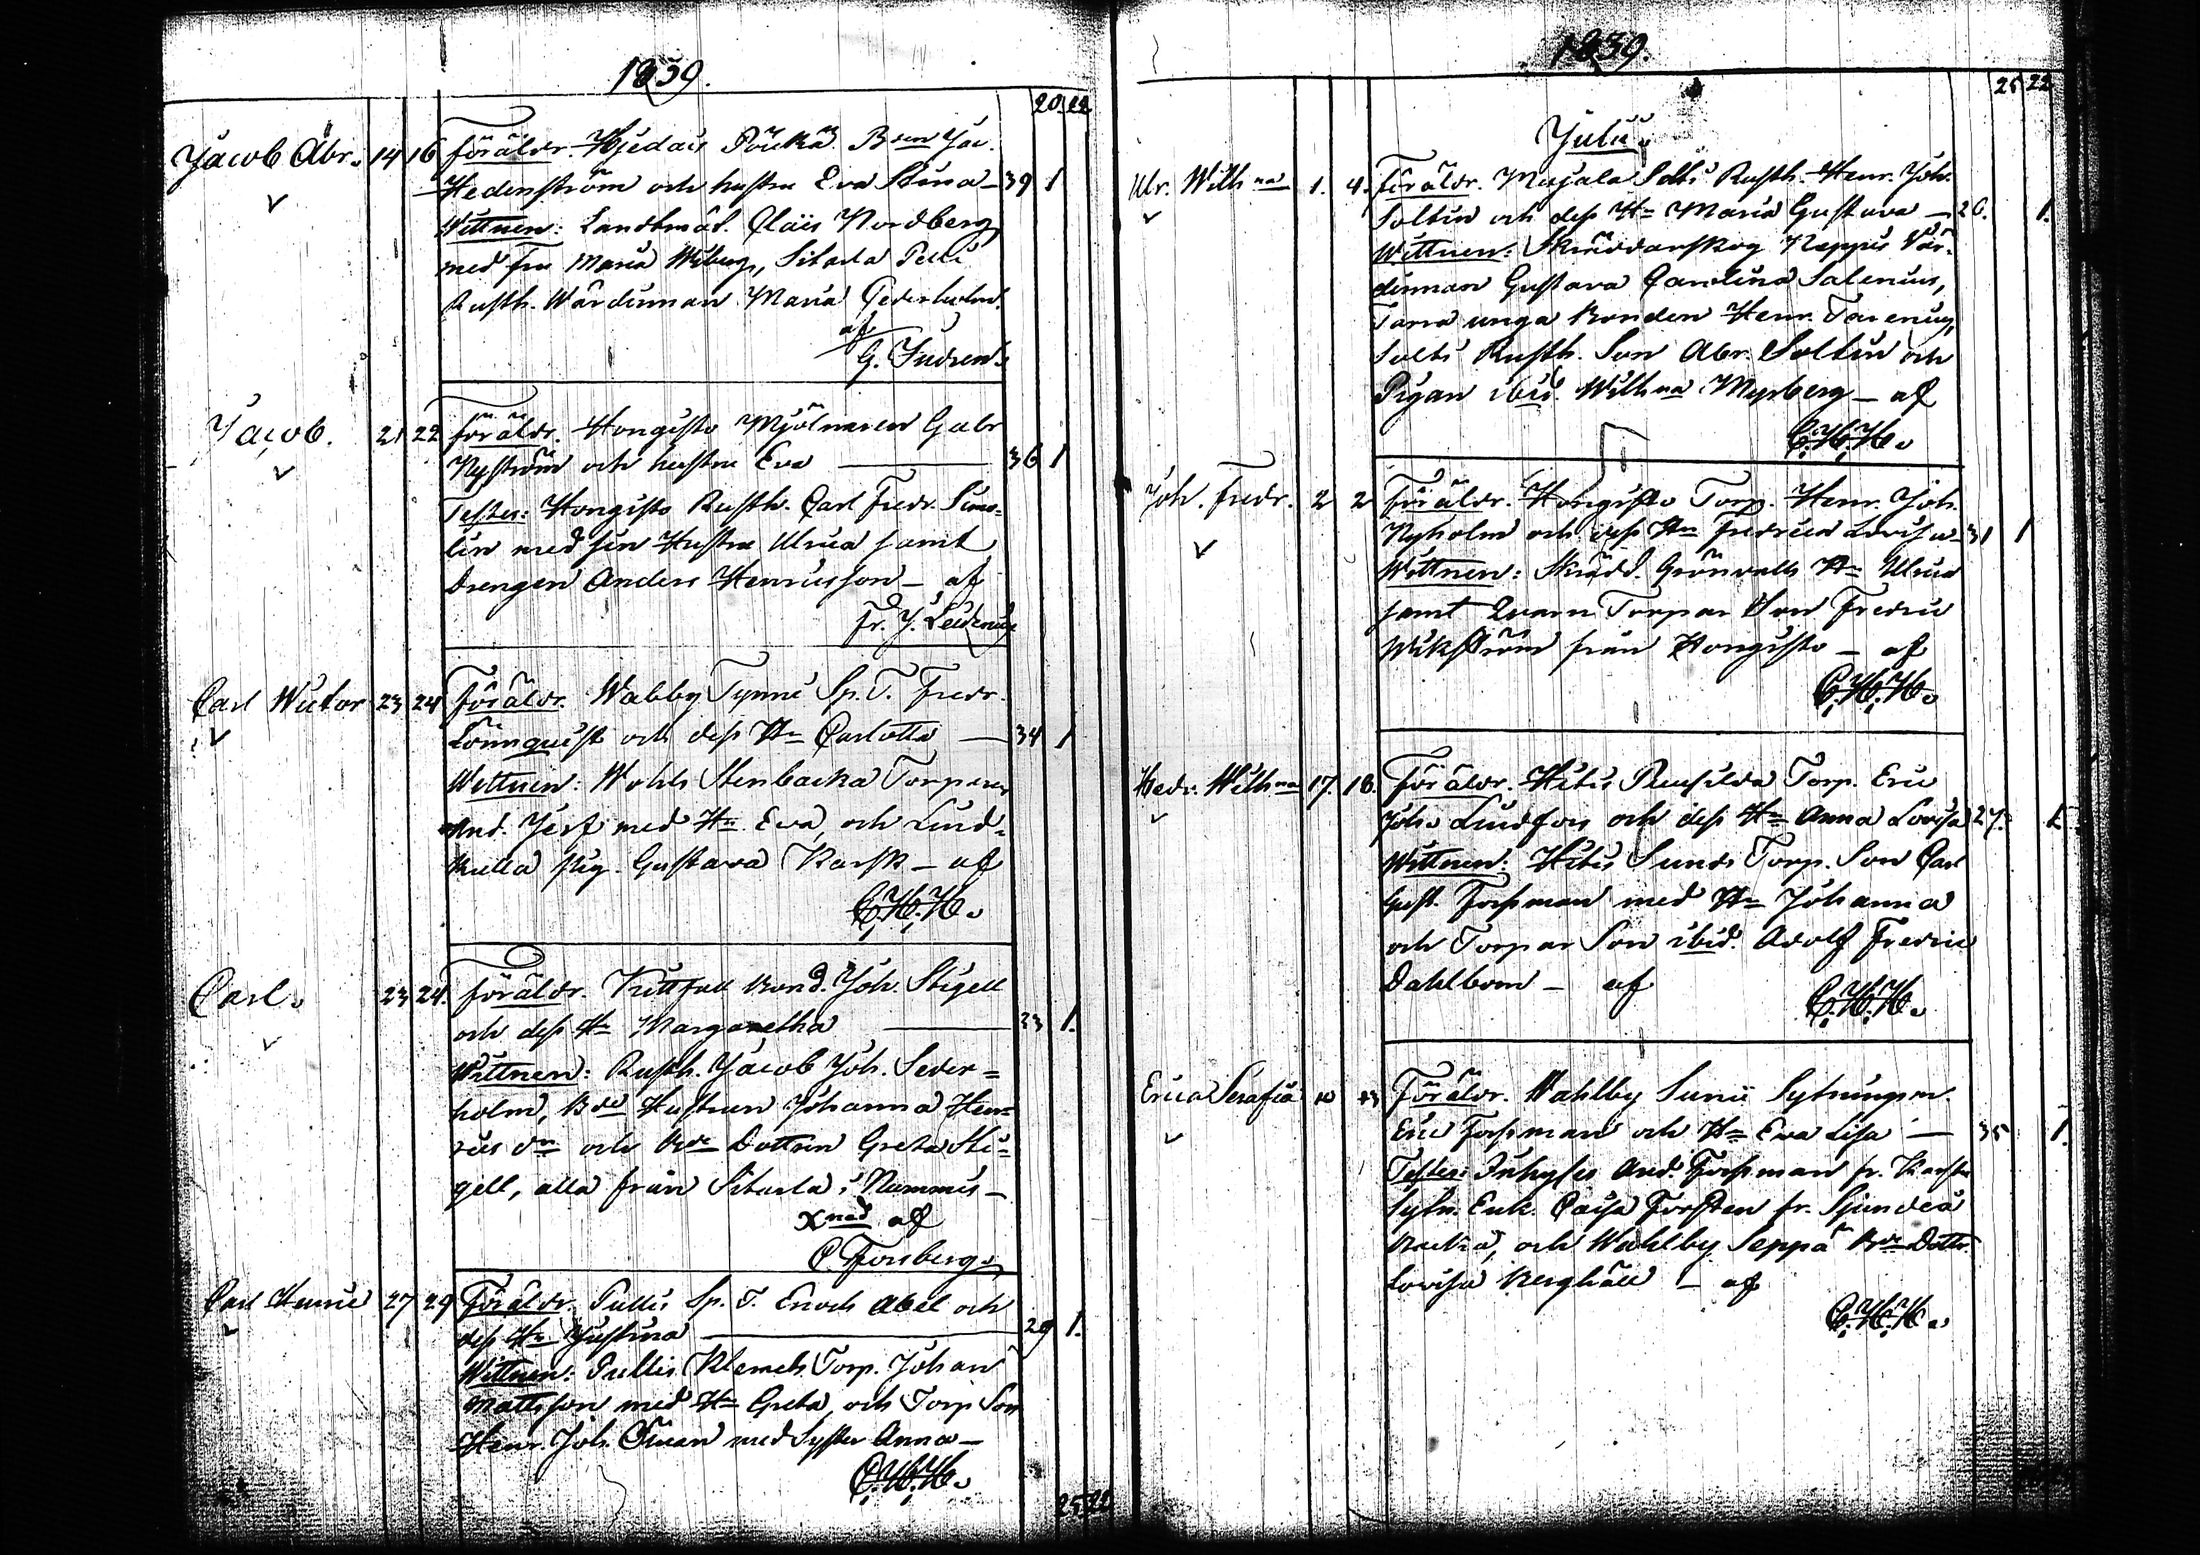 1839.
20 22
Jacob Abr. 14 16 föräldr. Hjedais Böen Jac.
Hedenström och hustru Eva Stina 39 1
Wittnen: Landtmät. Claës Nordberg
med fru Maria Wiberg, Sitarla Pelli
Rusth. Wärdinnan Maria Cederholm.
af
G. Indren.
Jacob. 21 22 föräldr. Hongisto Mjölnaren Gabr
Nyström och hustru Eva 36 1
Testes: Hongisto Rusth. Carl Fredr. Simo=
lin med sin Hustru Ulrica samt
Drengen Anders Henricsson – af
Fr. J.
Carl Wictor 23 24 föräldr. Wahlby Tynni Sp. T. Fredr.
Lönnquist och dess Hu Carlotta 34 1
Wittnen: Wohls Stenbacka Torparen
And. Jerf med Hu Eva, och Lind=
kulla pig. Gustava Karsk – af
C.H.H.
Carl. 23 24. föräldr. Kittfall Bond. Joh. Stigell
och dess Hu Margaretha 23 1.
Wittnen: Rusth. Jacob Joh. Seder=
holm, Bde Hustrun Johanna Hen=
rics dr och Bde Dottren Greta Sti=
gell, alla från Sitarla i Nummis –
Xnad af
C. Forsberg.
Carl Henric 27 29 Föräldr. Pullis Sp. T. Enoch Abel och
dess Hu Justina 29 1.
Wittnen: Pullis Klemets Torp. Johan
Mattsson med Hu Greta, och Torp. Son
Henr. Joh. Öman med Syster Anna –
C.H.H.
25 22
1839.
25 22
Julii.
Ulr. Wilhna 1. 4. föräldr. Marjala Solts Rusth. Henr. Joh.
Soltin och dess Hu Maria Gustava – 26. 1.
Wittnen: Skräddarskog Näppis Vär=
dinnan Gustava Carolina Salenius,
Tarra unga Bonden Henr. Tarenius,
Solts Rusth. Son Abr. Soltin och
Pigan ibid. Wilhna Myrberg – af
C.H.H.
Joh. Fredr. 2 2 föräldr. Hongisto Torp. Henr. Joh.
Nyholm och dess Hu Fredrica Lovisa 31 1
Wittnen: Skrädd. Grönvalls Hu Ulrica
samt Qvarn Torpar Son Fredric
Wikström från Hongisto – af
C.H.H.
Hedv. Wilhna 17. 18. föräldr. Hitis Torp. Eric
Joh. Lindfors och dess Hu Anna Lovisa 27. 1
Wittnen: Hitis Sunds Torp. Son Carl
Gust. Forsman med Hu Johanna
och Torpar Son ibid. Adolf Fredric
Dahlbom – af
C.H.H.
Erica Serafia 10 13 Föräldr. Wahlby Sunii Sytningsm.
Eric Forsman och Hu Eva Lisa – 35 1.
Testes: Inhyses And. Forsman fr.
Sytn. Enk. Caisa Forsten fr. Sjundeå
Backa, och Wahlby Seppä Bde Dottr.
Lovisa Berghäll – af
C.H.H.